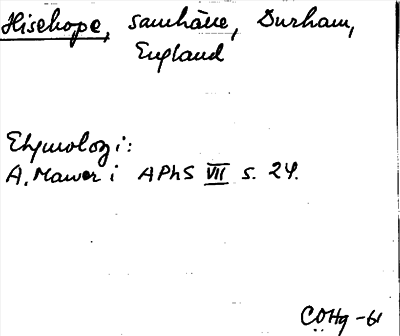 Hisehope, samhäve, Durham,
England
Etymologi:
A. Mawer i APhS VII s. 24.
COHg -61